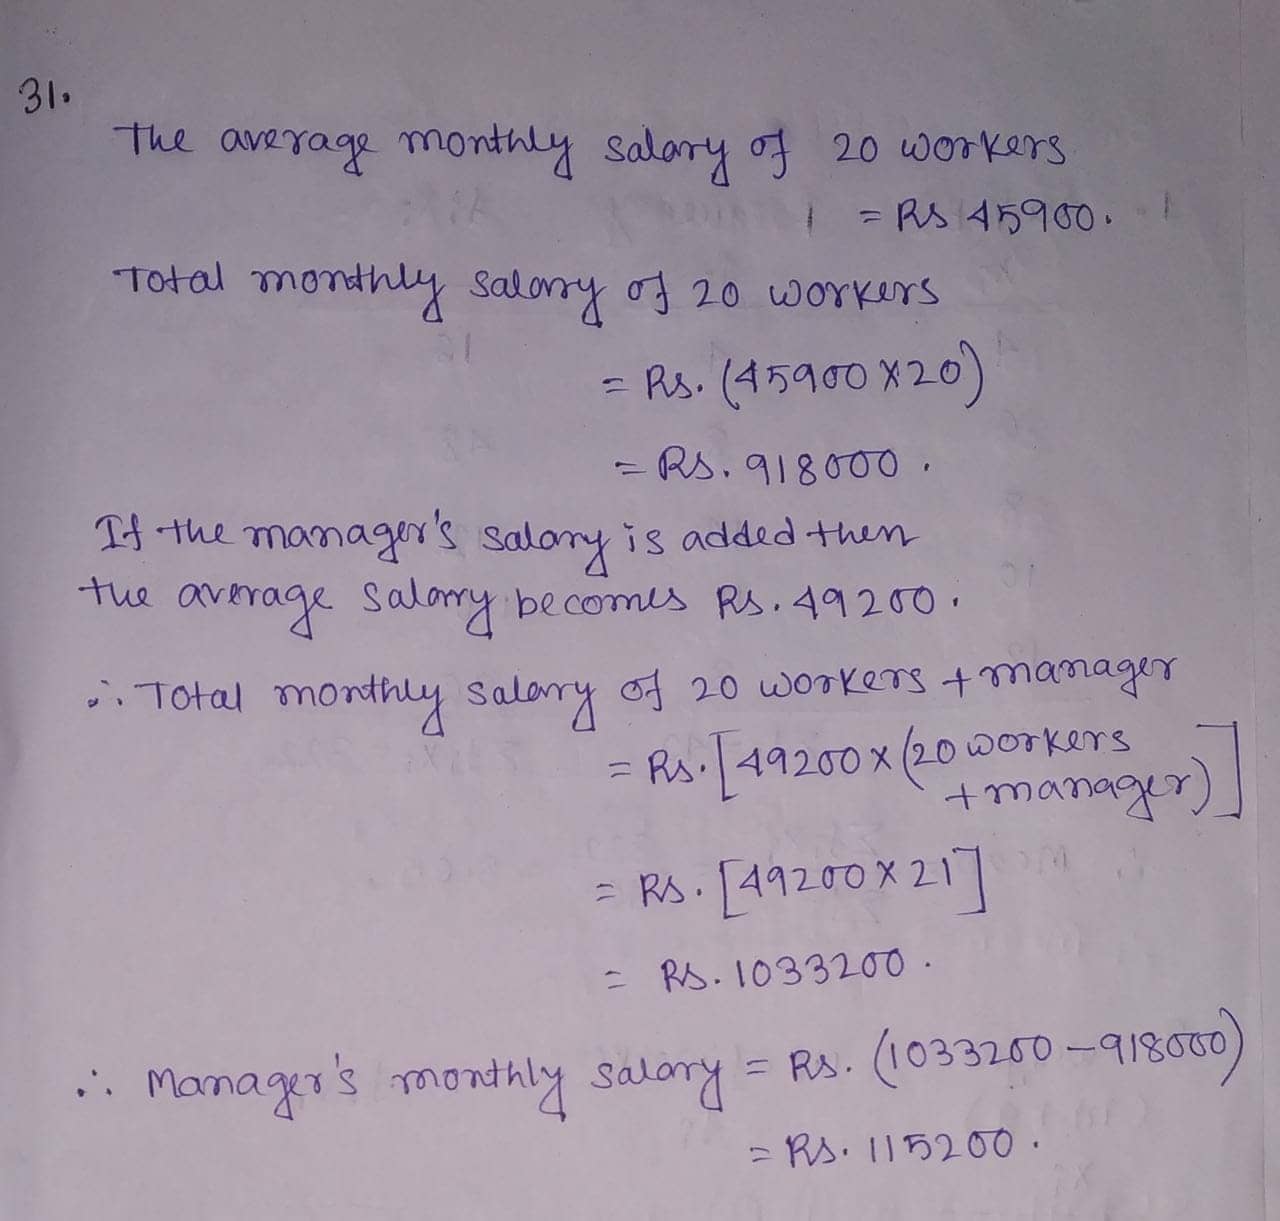 31.
The average monthly salary of 20 workers
= Rs 45900.
Total monthly salary of 20 workers
= Rs. (45900 x 20)
= Rs. 918000.
If the manager's salary is added then
the average salary becomes Rs. 49200.
∴ Total monthly salary of 20 workers + manager
= Rs. [49200 x (20 workers
+ manager)]
= Rs. [49200 x 21]
= Rs. 1033200.
∴ Manager's monthly salary = Rs. (1033200 - 918000)
= Rs. 115200.